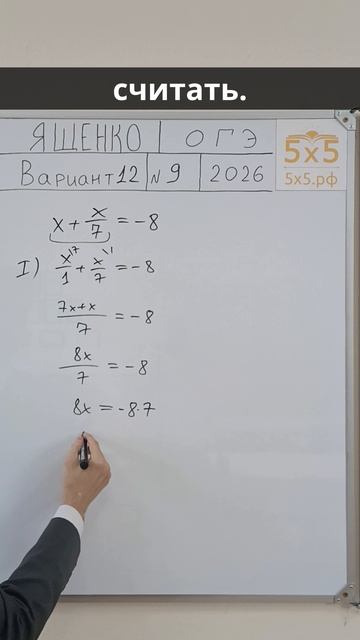 считать.
ЯЩЕНКО ОГЭ
Вариант 12 №9 2026
5х5
5х5.рф
x + x/7 = -8
I) x\7/1 + x\1/7 = -8
7x+x/7 = -8
8x/7 = -8
8x = -8·7